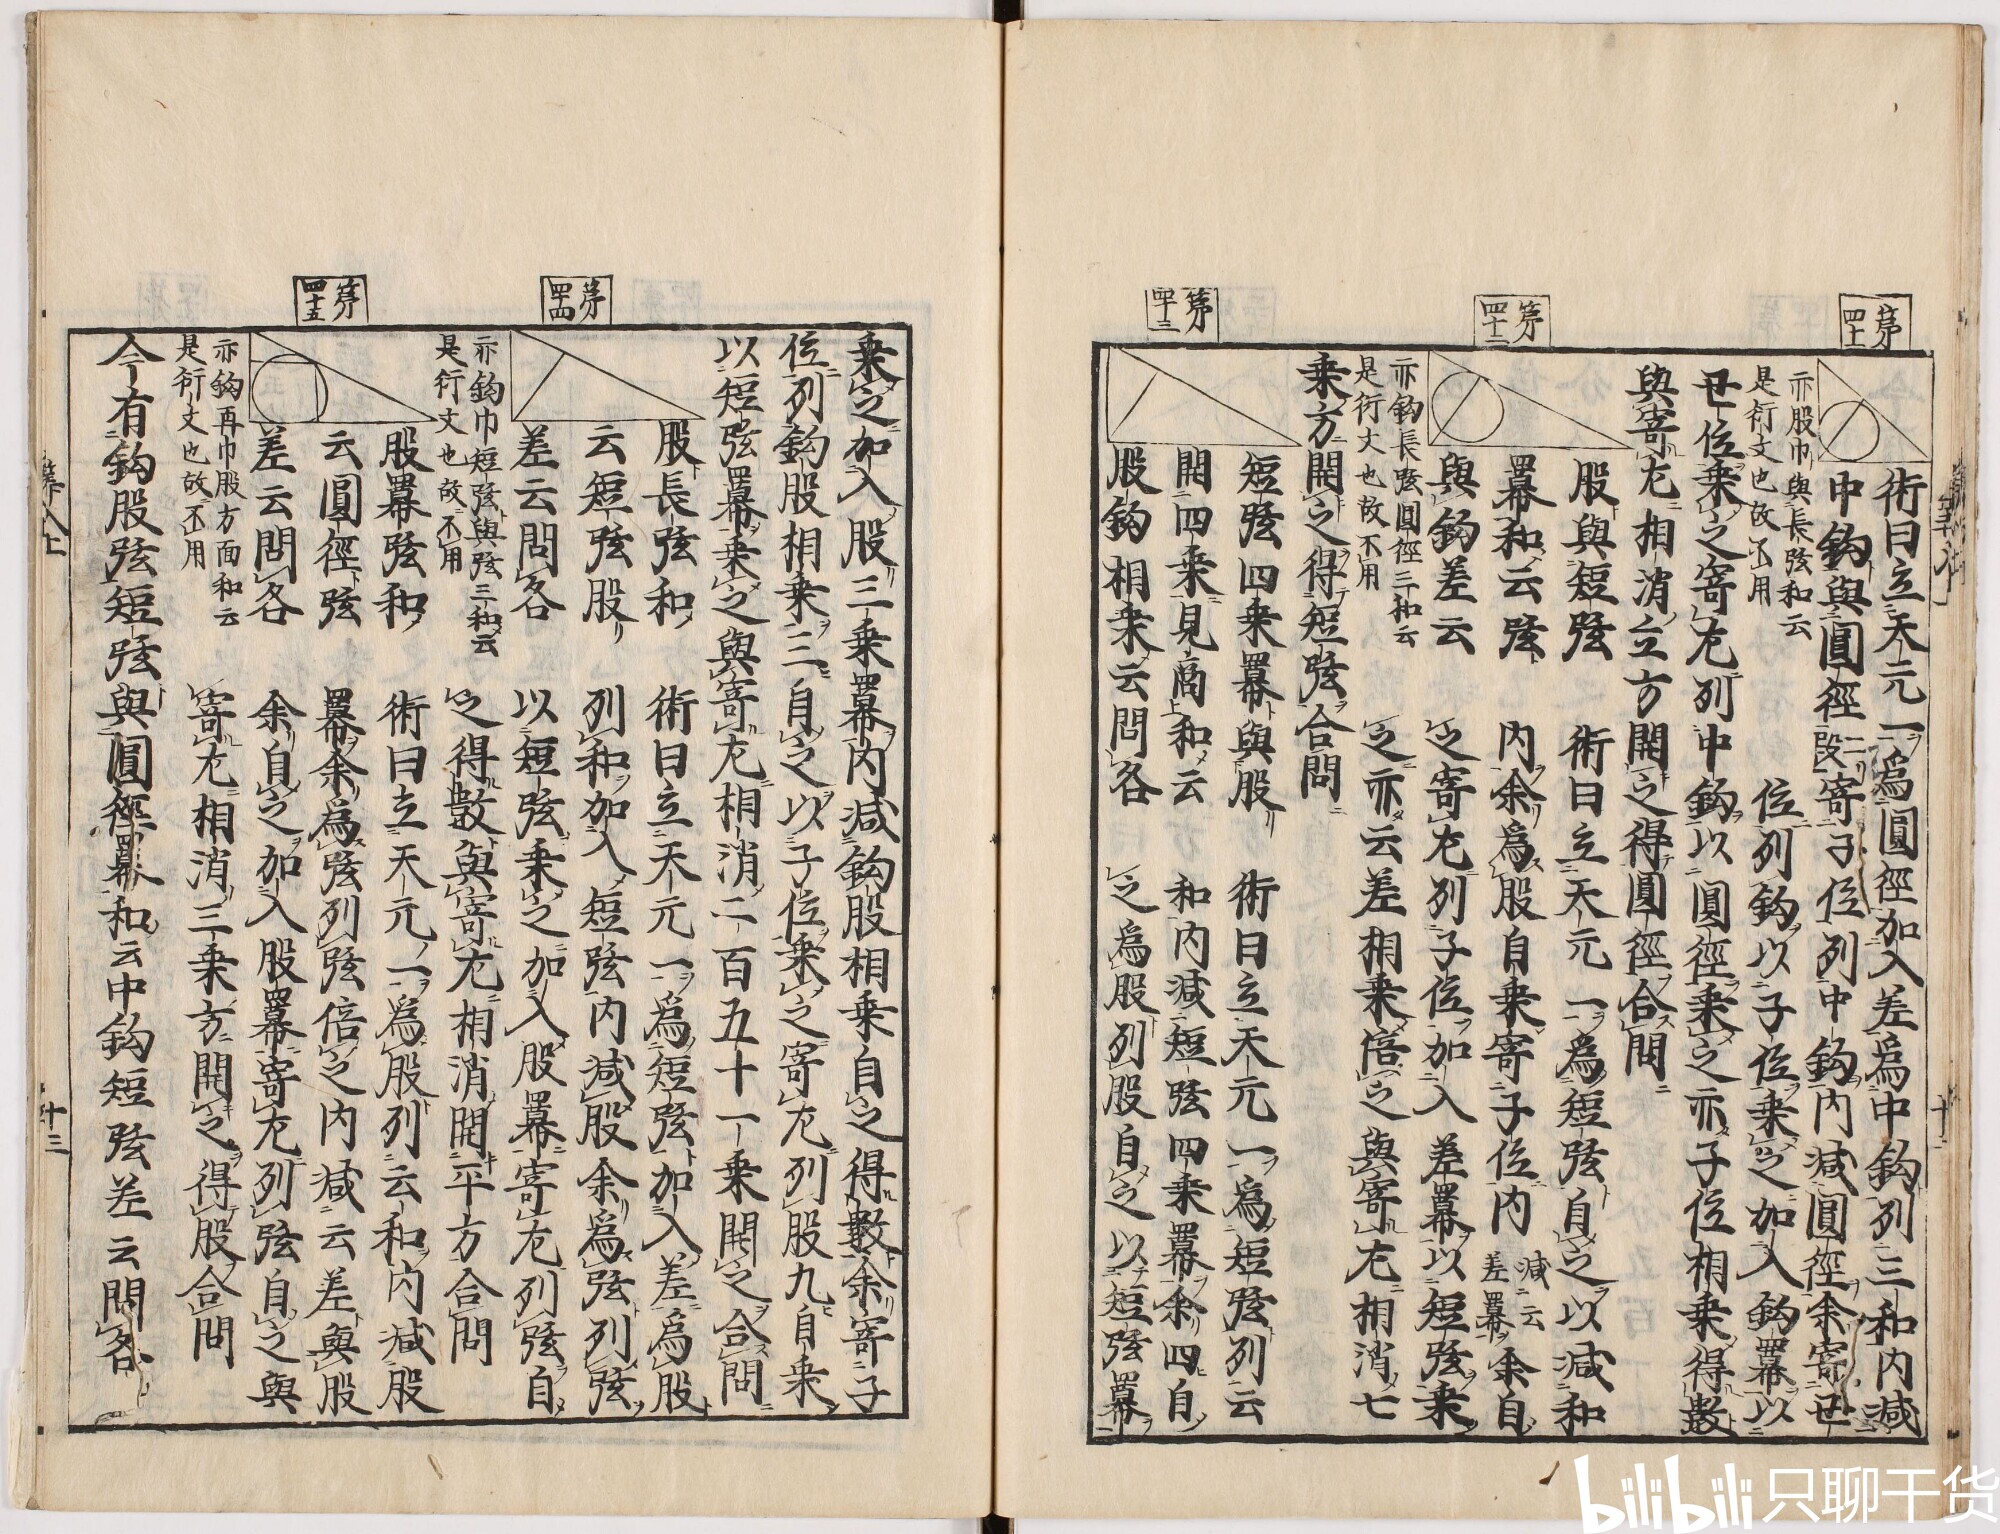 第四十一
術曰立天元一爲圓徑加入差爲中鈎列三和内減
中鈎與圓徑二段寄子位列中鈎内減圓徑余寄丑
位列鈎以子位乘之加入鈎冪以
亦股巾與長弦和云
是衍文也故不用
丑位乘之寄左列中鈎以圓徑乘之亦子位相乘得數
與寄左相消立方開之得圓徑合問
第四十二
股與短弦
冪和云弦
與鈎差云
術曰立天元一爲短弦自之以減和
内余爲股自乘寄子位内減云差冪余自
之寄左列子位加入差冪以短弦乘
之亦云差相乘倍之與寄左相消七
亦鈎長弦圓徑三和云
是衍文也故不用
乘方開之得短弦合問
第四十三
短弦四乘冪與股
開四乘見商和云
股鈎相乘云問各
術曰立天元一爲短弦列云
和内減短弦四乘冪余四自
之爲股列股自之以短弦冪
乘之加入股三乘冪内減鈎股相乘自之得數余寄子
位列鈎股相乘三自之以子位乘之寄左列股九自乘
以短弦冪乘之與寄左相消二百五十一乘開之合問
第四十四
股長弦和
云短弦股
差云問各
術曰立天元一爲短弦加入差爲股
列和加入短弦内減股余爲弦列弦
以短弦乘之加入股冪寄左列弦自
之得數與寄左相消開平方合問
亦鈎巾短弦與弦三和云
是衍文也故不用
第四十五
股冪弦和
云圓徑弦
差云問各
術曰立天元一爲股列云和内減股
冪余爲弦列弦倍之内減云差與股
余自之加入股冪寄左列弦自之與
寄左相消三乘方開之得股合問
亦鈎再巾股方面和云
是衍文也故不用
今有鈎股弦短弦與圓徑冪和云中鈎短弦差云問各
十三
bilibili 只聊干货